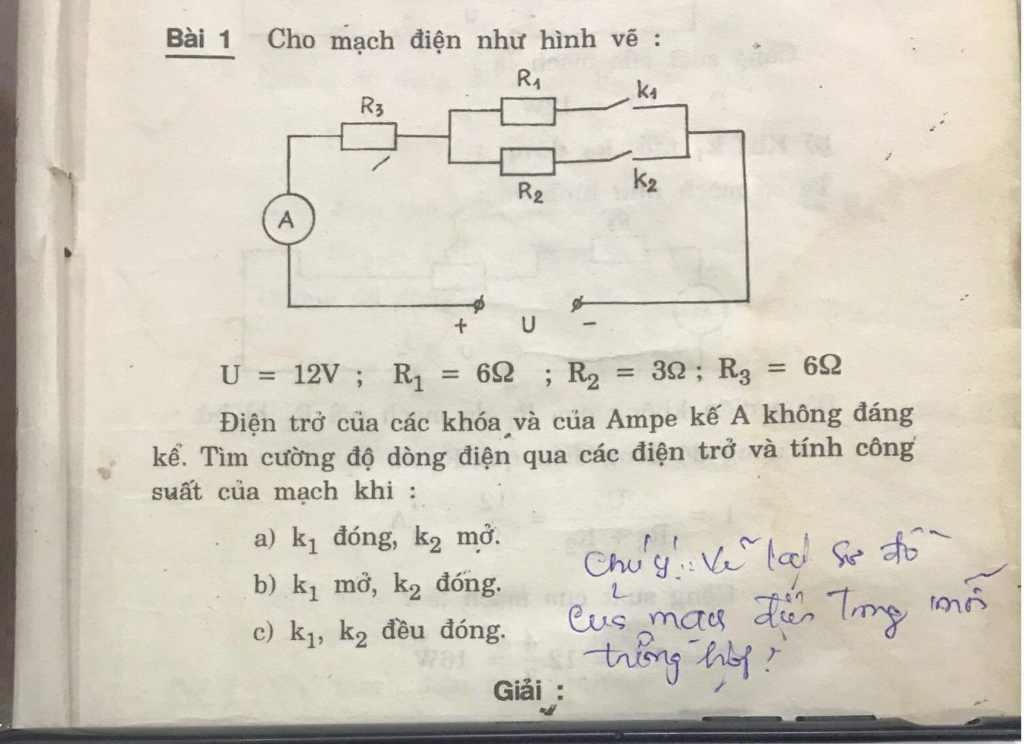 Bài 1 Cho mạch điện như hình vẽ :
R1 k1
R3
R2 k2
A
+ U −
U = 12V ; R1 = 6Ω ; R2 = 3Ω ; R3 = 6Ω
Điện trở của các khóa và của Ampe kế A không đáng
kể. Tìm cường độ dòng điện qua các điện trở và tính công
suất của mạch khi :
a) k1 đóng, k2 mở.
b) k1 mở, k2 đóng.
c) k1, k2 đều đóng.
Chú ý: Vẽ lại sơ đồ
của mạch điện trong mỗi
trường hợp!
Giải :